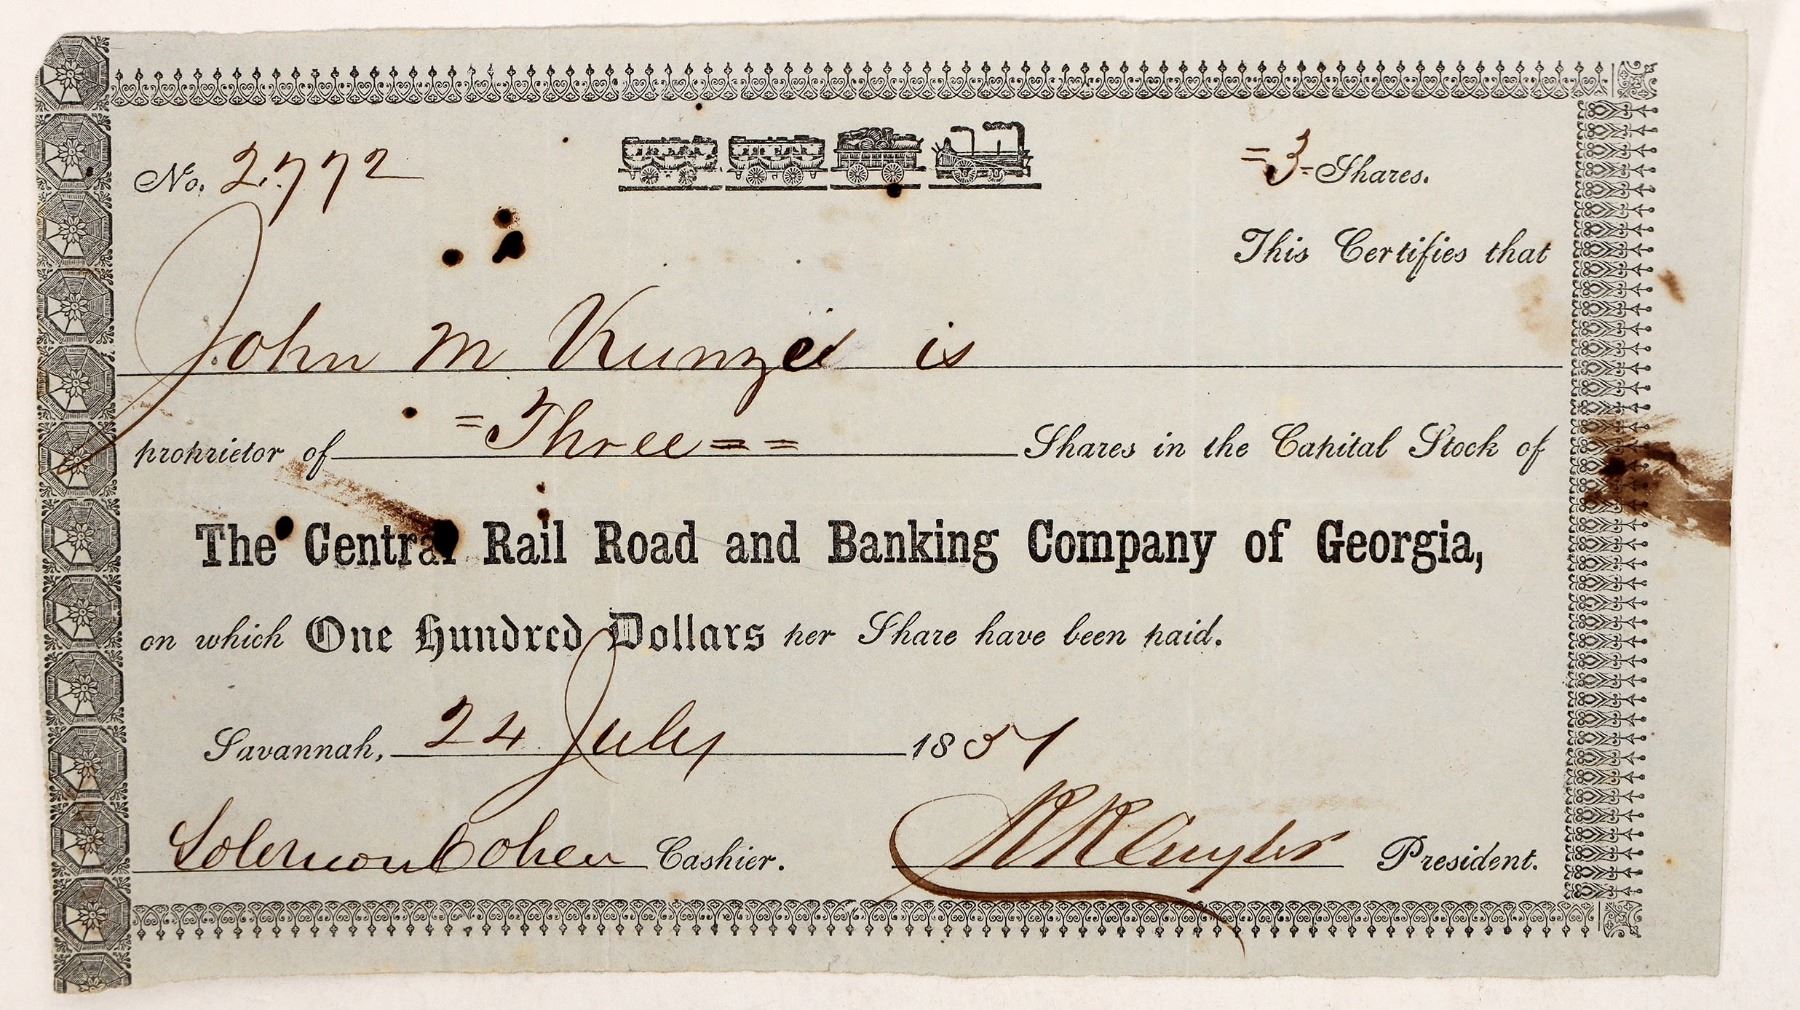 No. 2,772
=3= Shares.
This Certifies that
John M Kunzel is
proprietor of =Three== Shares in the Capital Stock of
The Central Rail Road and Banking Company of Georgia,
on which One Hundred Dollars per Share have been paid.
Savannah, 24 July 1851
Solomon Cohen Cashier. R R Cuyler President.